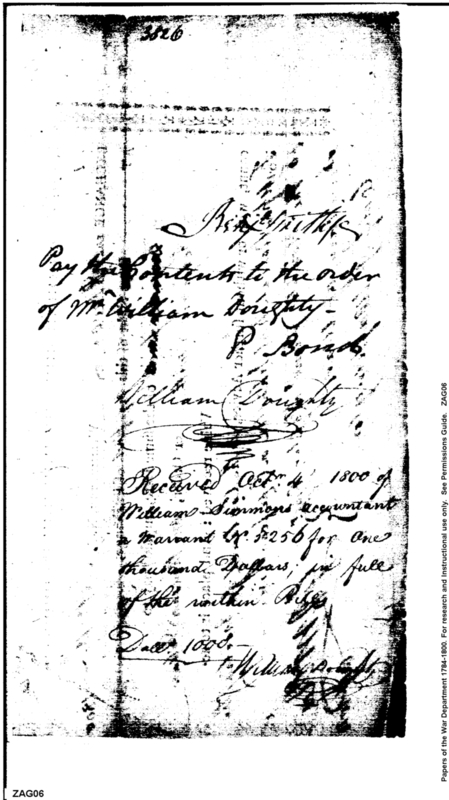 3826
Pay the Contents to the order
of Mr. William Doughty -
P Bond
William Doughty
Received Octr 4 1800 of
William Simmons accountant
a warrant No. 5256 for One
thousand Dollars, in full
of the within Bill
Dolls 1000.
William Doughty
ZAG06
Papers of the War Department 1784-1800. For research and Instructional use only. See Permissions Guide. ZAG06